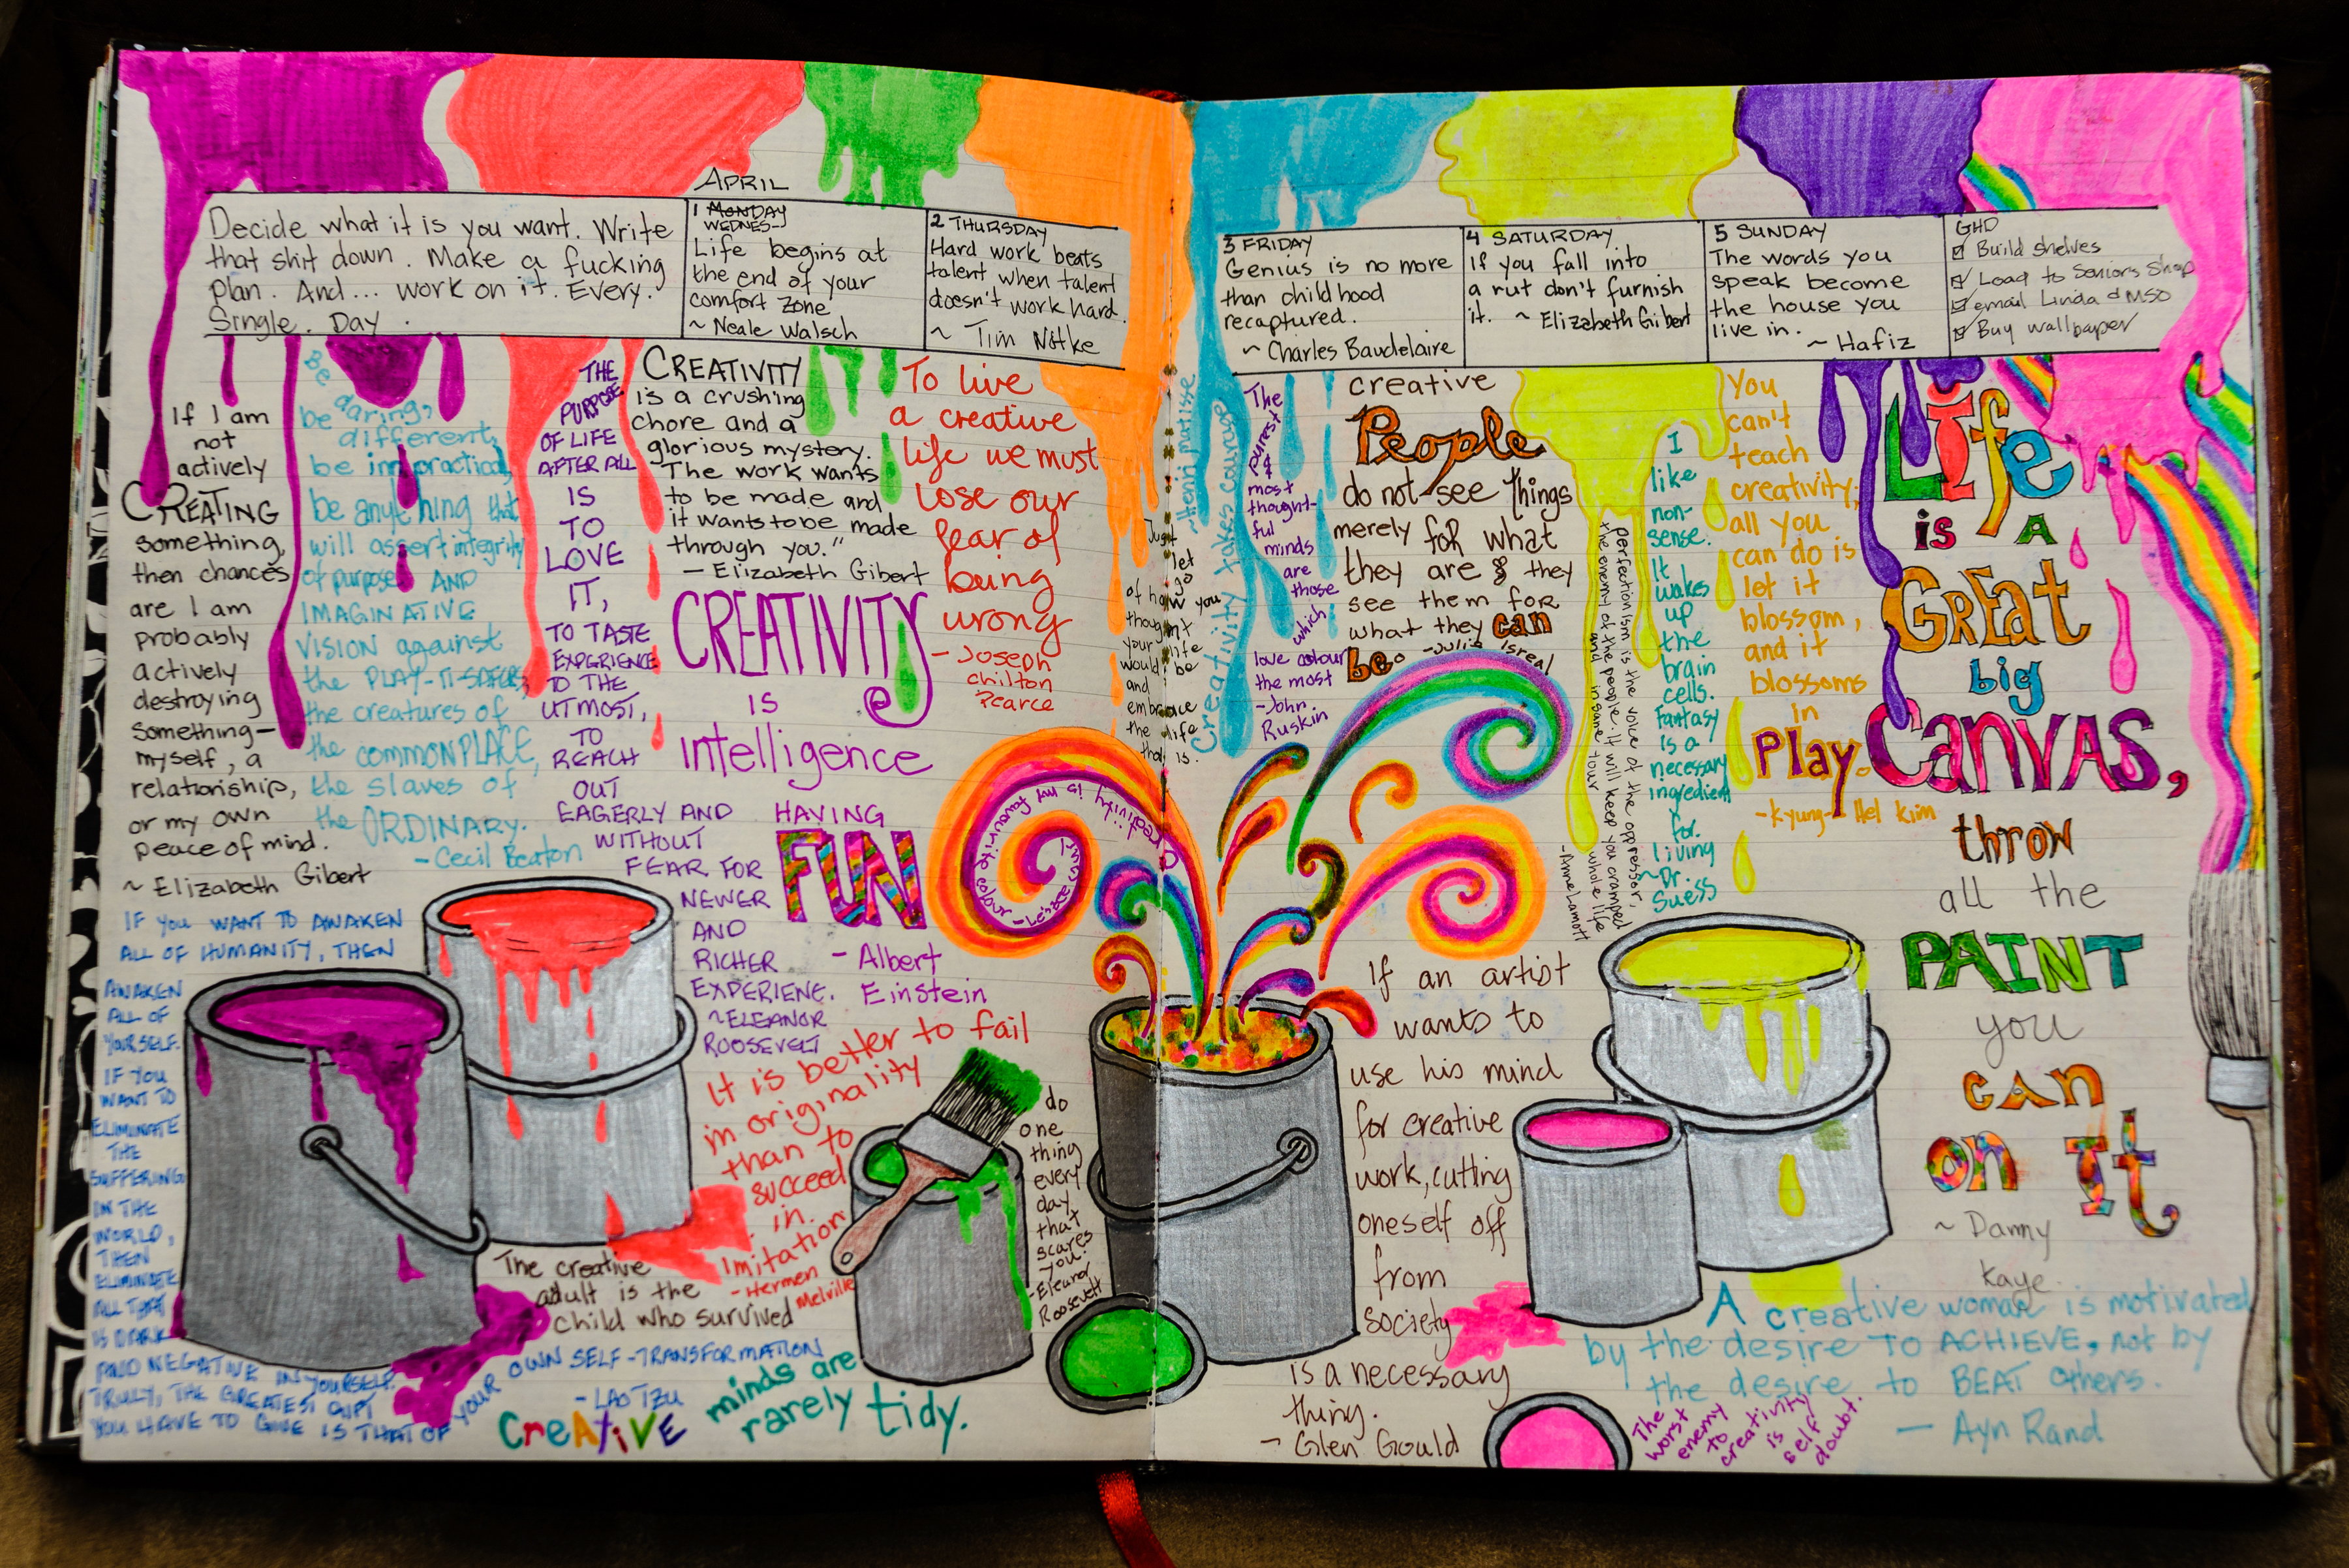 APRIL
Decide what it is you want. Write
that shit down. Make a fucking
plan. And... work on it. Every.
Single. Day.
1 MONDAY
WEDNES-
Life begins at
the end of your
comfort zone
~ Neale Walsch
2 THURSDAY
Hard work beats
talent when talent
doesn't work hard.
~ Tim Notke
3 FRIDAY
Genius is no more
than childhood
recaptured.
~ Charles Baudelaire
4 SATURDAY
If you fall into
a rut don't furnish
it. ~ Elizabeth Gibert
5 SUNDAY
The words you
speak become
the house you
live in.
~ Hafiz
GHD
Build shelves
Load to Seniors Shop
email Linda & MSO
Buy wallpaper
If I am
not
actively
CREATING
something,
then chances
are I am
probably
actively
destroying
something—
myself, a
relationship,
or my own
peace of mind.
~ Elizabeth Gibert
Be
daring,
be different,
be impractical,
be anything that
will assert integrity
of purpose AND
IMAGINATIVE
VISION against
the PLAY-IT-SAFERS,
the creatures of
the COMMONPLACE,
the slaves of
the ORDINARY.
- Cecil Beaton
THE
PURPOSE
OF LIFE
AFTER ALL
IS
TO
LOVE
IT,
TO TASTE
EXPERIENCE
TO THE
UTMOST,
TO
REACH
OUT
EAGERLY AND
WITHOUT
FEAR FOR
NEWER
AND
RICHER
EXPERIENE.
~ ELEANOR
ROOSEVELT
CREATIVITY
is a crushing
chore and a
glorious mystery.
The work wants
to be made and
it wants to be made
through you."
— Elizabeth Gibert
To live
a creative
life we must
lose our
fear of
being
wrong
- Joseph
Chilton
Pearce
CREATIVITY
IS
intelligence
HAVING
FUN
- Albert
Einstein
IF YOU WANT TO AWAKEN
ALL OF HUMANITY, THEN
AWAKEN
ALL OF
YOURSELF.
IF YOU
WANT TO
ELIMINATE
THE
SUFFERING
IN THE
WORLD,
THEN
ELIMINATE
ALL THAT
IS DARK
AND NEGATIVE IN YOURSELF.
TRULY, THE GREATEST GIFT
YOU HAVE TO GIVE IS THAT OF YOUR OWN SELF-TRANSFORMATION
- LAO TZU
It is better to fail
in originality
than to
succeed
in
imitation
- Hermen
Melville
The creative
adult is the
child who survived
CreATiVE minds are
rarely tidy.
do
one
thing
every
day
that
scares
you.
- Eleanor
Roosevelt
Creativity... is my favourite colour
Just
let
go
of how you
thought
your life
would be
and
embrace
the life
that is.
Creativity takes courage
~ Henri Matisse
The
purest
&
most
thought-
ful
minds
are
those
which
love colour
the most
- John
Ruskin
creative
People
do not see things
merely for what
they are & they
see them for
what they can
be. - Julie Isreal
perfectionism is the voice of the oppressor,
the enemy of the people. it will keep you cramped
and insane your whole life
- Anne Lamott
I
like
non-
sense.
It
wakes
up
the
brain
cells.
Fantasy
is a
necessary
ingredient
for
living
~ Dr.
Suess
You
can't
teach
creativity,
all you
can do is
let it
blossom,
and it
blossoms
in
Play.
- Kyung- Hei Kim
Life
is A
GREat
big
CanVAS,
throw
all the
PAINT
you
can
on It
~ Danny
Kaye.
If an artist
wants to
use his mind
for creative
work, cutting
oneself off
from
society
is a necessary
thing.
- Glen Gould
A creative woman is motivated
by the desire to ACHIEVE, not by
the desire to BEAT others.
— Ayn Rand
The
worst
enemy
to
creativity
is
self
doubt.